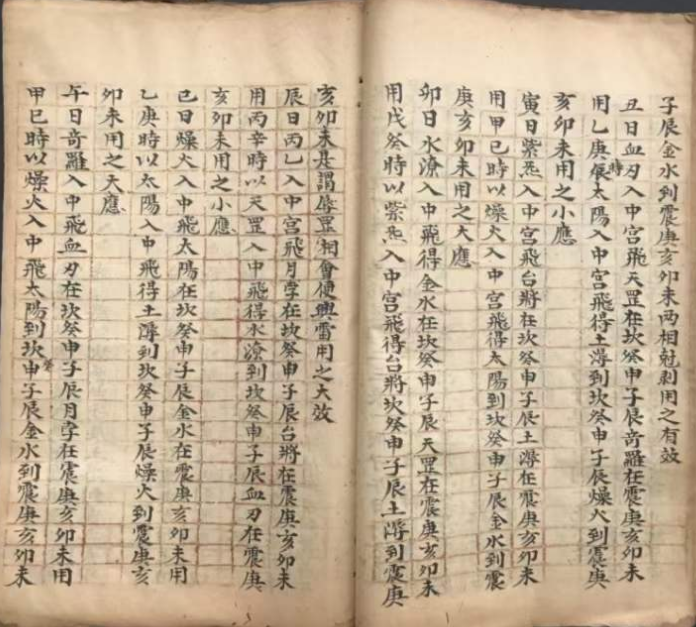 子辰金水到震庚亥卯未两相尅剥用之有效
丑日血刃入中宫飛天罡在坎癸申子辰竒羅在震庚亥卯未
用乙庚時太陽入中宫飛得土潯到坎癸申子辰燥火到震庚
亥卯未用之小應
寅日紫炁入中宫飛台將在坎癸申子辰土潯在震庚亥卯未
用甲巳時以燥火入中宫飛得太陽到坎癸申子辰金水到震
庚亥卯未用之大應
卯日水潦入中飛得金水在坎癸申子辰天罡在震庚亥卯未
用戊癸時以紫炁入中宫飛得台將坎癸申子辰土潯到震庚
亥卯未是謂辱罡相會便興雷用之大效
辰日丙乙入中宫飛月孛在坎癸申子辰台將在震庚亥卯未
用丙辛時以天罡入中飛得水潦到坎癸申子辰血刃在震庚
亥卯未用之小應
巳日燥火入中飛太陽在坎癸申子辰金水在震庚亥卯未用
乙庚時以太陽入中飛得土潯到坎癸申子辰燥火到震庚亥
卯未用之大應
午日竒羅入中飛血刃在坎癸申子辰月孛在震庚亥卯未用
甲巳時以燥火入中飛太陽到坎癸申子辰金水到震庚亥卯未